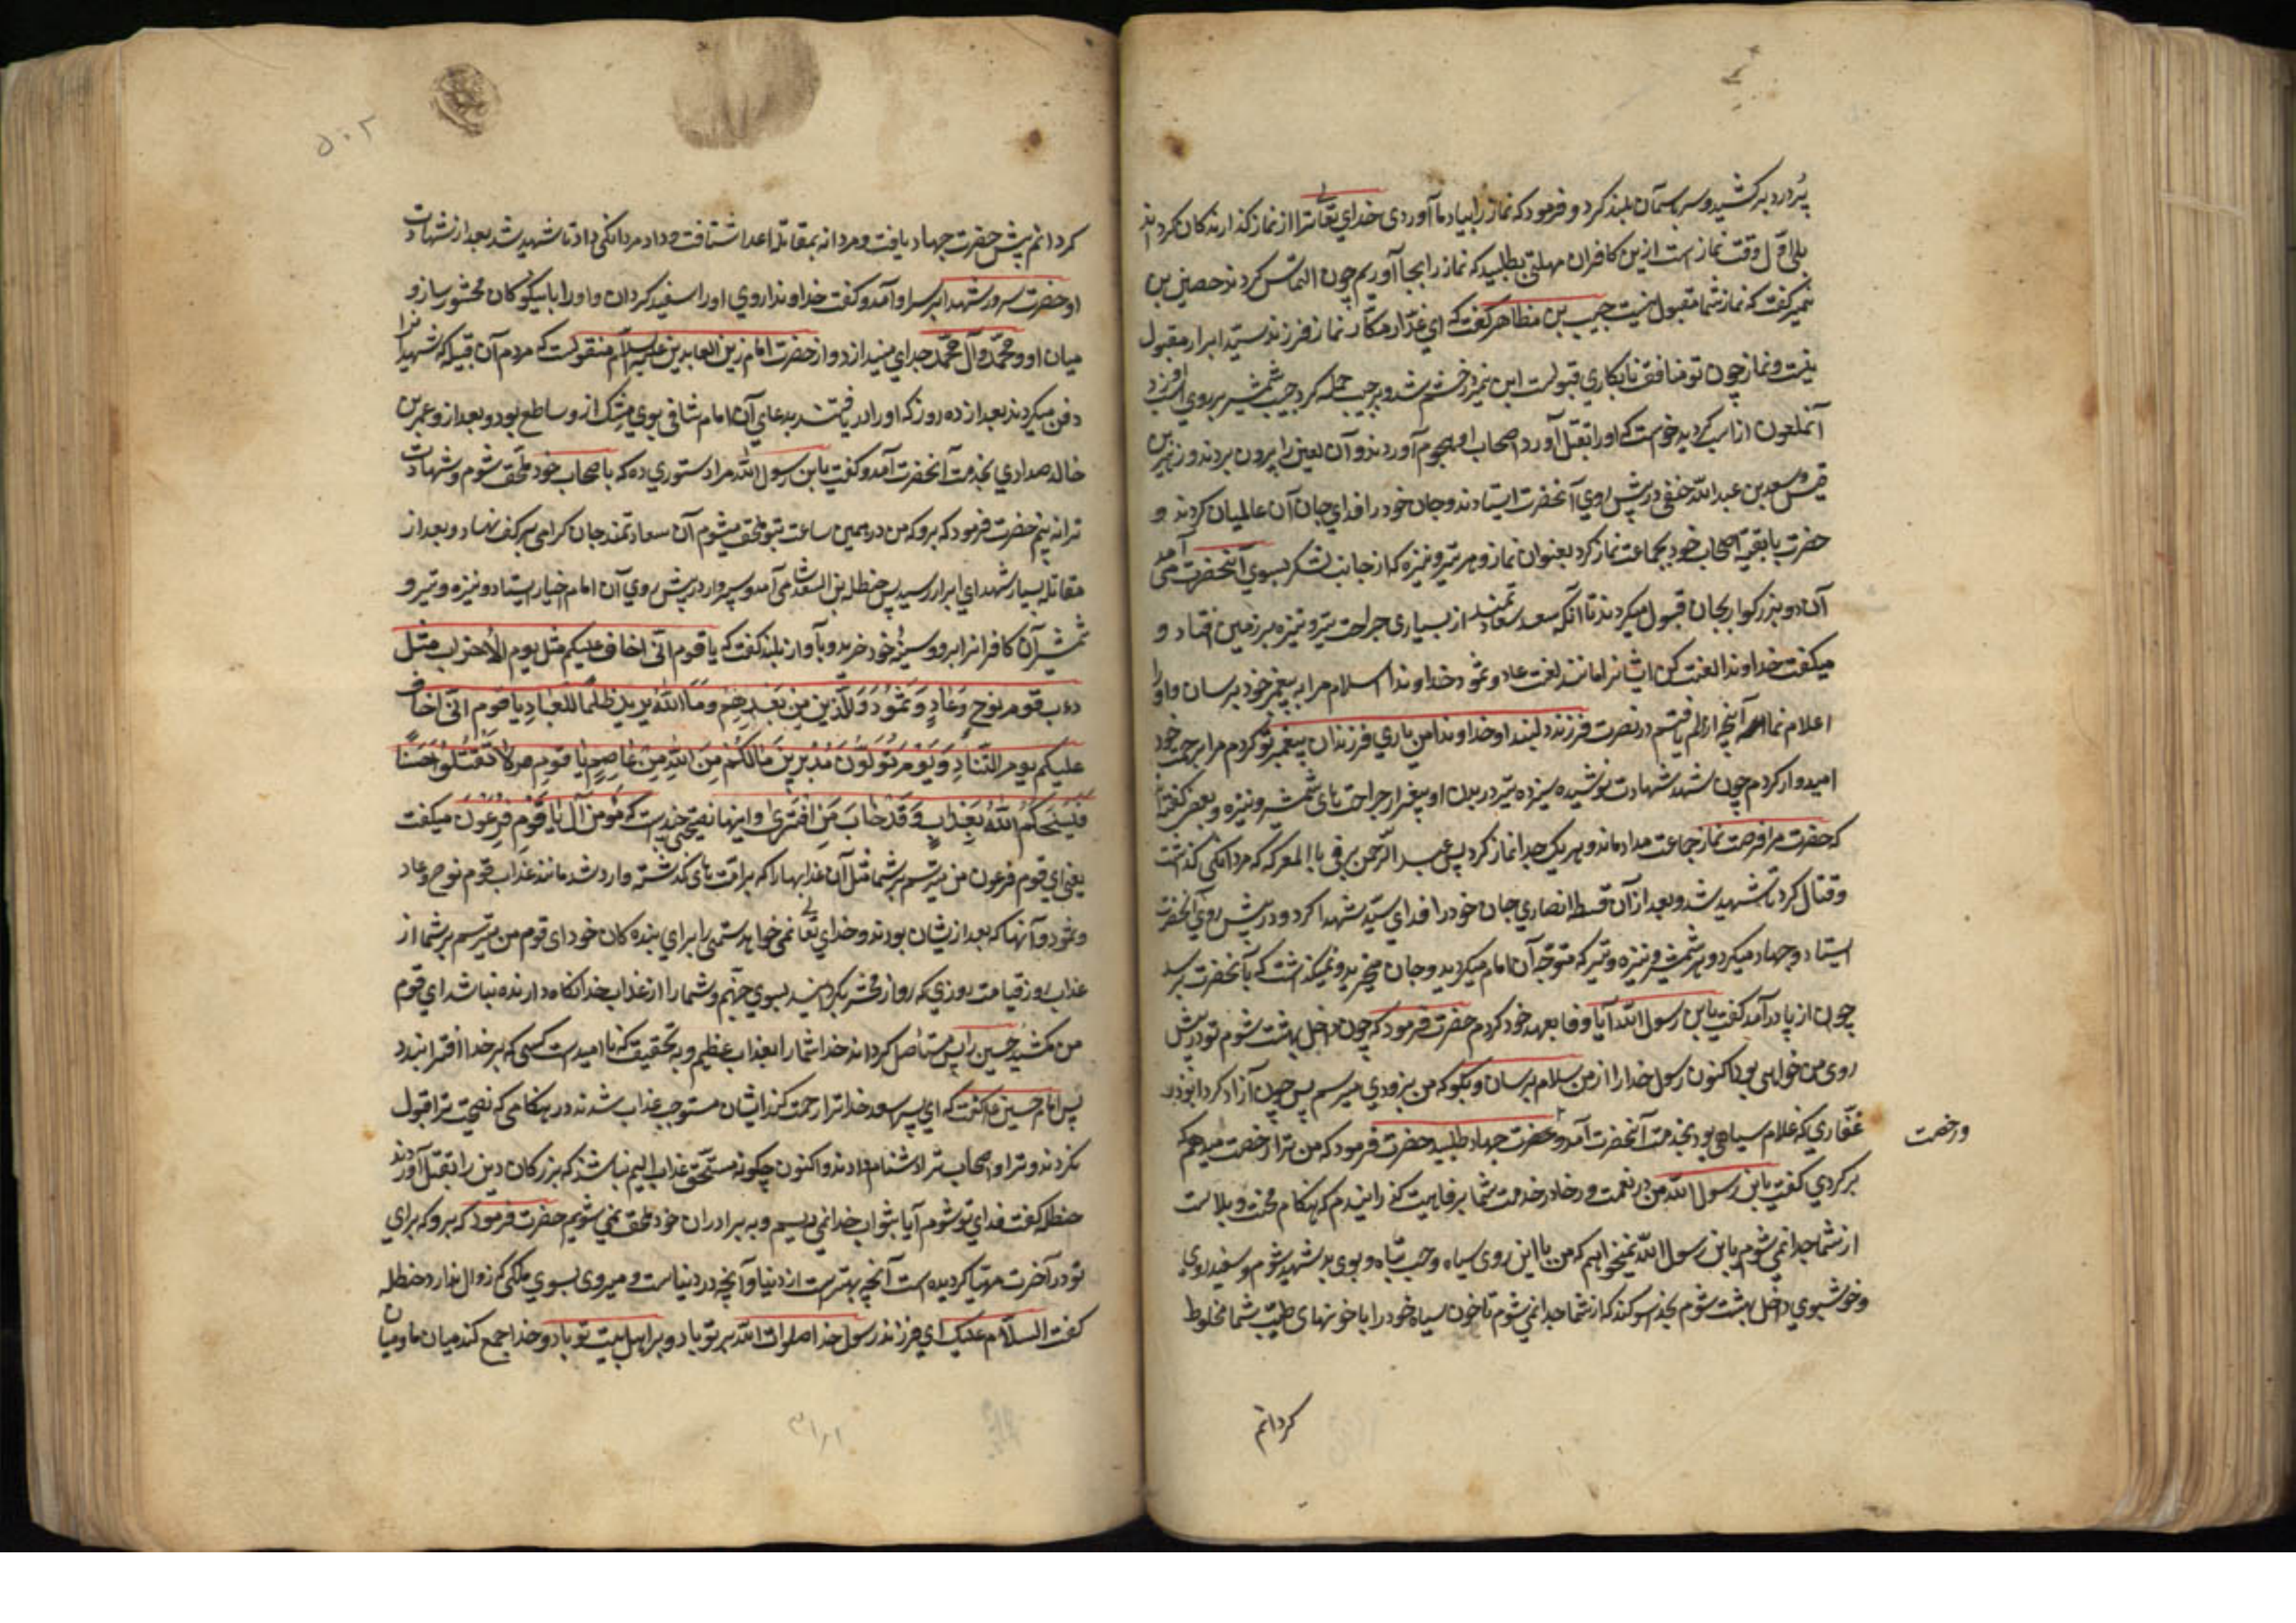 پردرد برکشید و سر بآسمان بلند کرد و فرمود که نماز را بیاد ما آوردی خدای تعالی ترا از نماز گذارندگان گرداند
بلی اول وقت نماز است ازین کافران مهلتی بطلبید که نماز را بجا آوریم چون التماس کردند حصین بن
نمیر گفت که نماز شما مقبول نیست حبیب بن مظاهر گفت که ای غدار مکار نماز فرزند سید ابرار مقبول
نیست و نماز چون تو منافق نابکاری قبولست ابن نمیر در خشم شد و بر حبیب حمله کرد حبیب شمشیر بر روی اسب او زد
آنملعون از اسب گردید خواست که اورا بقتل آورد اصحاب او هجوم آوردند و آن لعین را بیرون بردند و زهیر بن
قیس و سعد بن عبد الله حنفی در پیش روی آنحضرت ایستادند و جان خود را فدای جان آن عالمیان کردند و
حضرت با بقیه اصحاب خود بجماعت نماز کرد بعنوان نماز و هر تیر و نیزه که از جانب لشکر بسوی آنحضرت می آمد
آن دو بزرگوار بجان قبول میکردند تا آنکه سعد سعادتمند از بسیاری جراحت تیر و نیزه بر زمین افتاد و
میگفت خداوندا لعنت کن ایشانرا مانند لعنت عاد و ثمود خداوندا سلام مرا به پیغمبر خود برسان و اورا
اعلام نما آنچه از الم یافتم در نصرت فرزند دلبند او خداوندا من یاری فرزندان پیغمبر تو کردم مرا برحمت خود
امیدوار کردم چون شهد شهادت نوشیده سیزده تیر در بدن او بغیر از جراحت های شمشیر و نیزه و بعضی گفته‌اند
که حضرت را فرصت نماز جماعت ندادماند و هر یک جدا نماز کرد پس عبد الرحمن برفی با المعرکه که مردانگی گذاشت
و قتال کرد تا شهید شد و بعد از آن قسطه انصاری جان خود را فدای سید شهدا کرد و در پیش روی آنحضرت
ایستاد و جهاد میکرد و هر شمشیر و نیزه و تیر که متوجه آن امام میگردید و جان میخرید و نمیگذاشت که بآنحضرت برسد
چون از پا درآمد گفت یابن رسول الله آیا وفا بعهد خود کردم حضرت فرمود که چون داخل بهشت شوم تو در پیش
روی من خواهی بود اکنون رسول خدا را از من سلام برسان و بگو که من بزودی میرسم پس چون آزاد کرده ابوذر
غفاری که غلام سیاهی بود بخدمت آنحضرت آمد و حضرت جهاد طلبید حضرت فرمود که من ترا رخصت میدهم که
و رخصت
برگردی گفت یابن رسول الله من در نعمت و رخا در خدمت شما برفاهیت گذرانیدم که هنگام محنت و بلاست
از شما جدا نمی شوم یابن رسول الله نمیخواهم که من با این روی سیاه و حسب تباه و بوی بد شهید شوم و سفید روی
و خوشبوی داخل بهشت شوم بخدا سوگند که از شما جدا نمی شوم تا خون سیاه خود را با خونهای طیب شما مخلوط
گردانم
۵۰۲
گردانم پیش حضرت جهاد یافت و مردانه بمقاتله اعدا شتافت و داد مردانگی داد تا شهید شد بعد از شهادت
او حضرت سرور شهدا بر سر او آمد و گفت خداوندا روی اورا سفید گردان و اورا با نیکوکان محشور ساز و
میان او و محمد و آل محمد جدای مینداز و از حضرت امام زین العابدین علیه السلام منقولست که مردم آن قبیله که شهیدانرا
دفن میکردند بعد از ده روز که اورا دریافتند بدعای آن امام شافی بوی مشک از و ساطع بود و بعد از و عمر بن
خالد صدادی بخدمت آنحضرت آمد و گفت یابن رسول الله مرا دستوری ده که باصحاب خود ملحق شوم و شهادت
ترا نه بینم حضرت فرمود که برو که من در همین ساعت بتو ملحق میشوم آن سعادتمند جان گرامی بر کف نهاد و بعد از
مقاتله بسیار شهدای ابرار رسید پس حنظله بن السعد شامی آمد و سپروار در پیش روی آن امام اخیار ایستاد و نیزه و تیر و
شمشیر آن کافرانرا برو و سینهٔ خود خرید و بآواز بلند گفت که یا قوم انی اخاف علیکم مثل یوم الاحزاب مثل
دءب قوم نوح وعاد وثمود والذین من بعدهم وما الله یرید ظلما للعباد یا قوم انی اخاف
علیکم یوم التناد ویوم تولون مدبرین مالکم من الله من عاصم یا قوم لا تقتلوا حسینا
فیسحتکم الله بعذاب وقد خاب من افتری و اینها نصیحتی چند است که مومن آل یا قوم فرعون میگفت
یعنی ای قوم فرعون من میترسم بر شما مثل آن عذابها را که بر امت های گذشته وارد شد مانند عذاب قوم نوح و عاد
و ثمود و آنها که بعد ازیشان بودند و خدای تعالی نمی خواهد ستمی را برای بنده کان خود ای قوم من میترسم بر شما از
عذاب روز قیامت روزی که رو از محشر بگردانید بسوی جهنم و شما را از عذاب خدا نگاه دارنده نباشد ای قوم
من مکشید حسین را پس مستأصل گرداند خدا شما را بعذاب عظیم و به تحقیق که نا امیدست کسی که بر خدا افترا بندد
پس امام حسین ع گفت که ای پسر سعد خدا ترا رحمت کند ایشان مستوجب عذاب شدند در هنگامی که نصیحت ترا قبول
نکردند و ترا و اصحاب ترا دشنام دادند و اکنون چگونه مستحق عذاب الیم نباشند که بزرگان دین را بقتل آوردند
حنظله گفت فدای تو شوم آیا بثواب خدا نمی رسیم و به برادران خود ملحق نمی شویم حضرت فرمود که برو که برای
تو در آخرت مهیا گردیده است آنچه بهتر است از دنیا و آنچه در دنیاست و میروی بسوی ملکی که زوال ندارد حنظله
گفت السلام علیک ای فرزند رسول خدا صلوات الله بر تو باد و بر اهل بیت تو باد و خدا جمع کند میان ما و میان